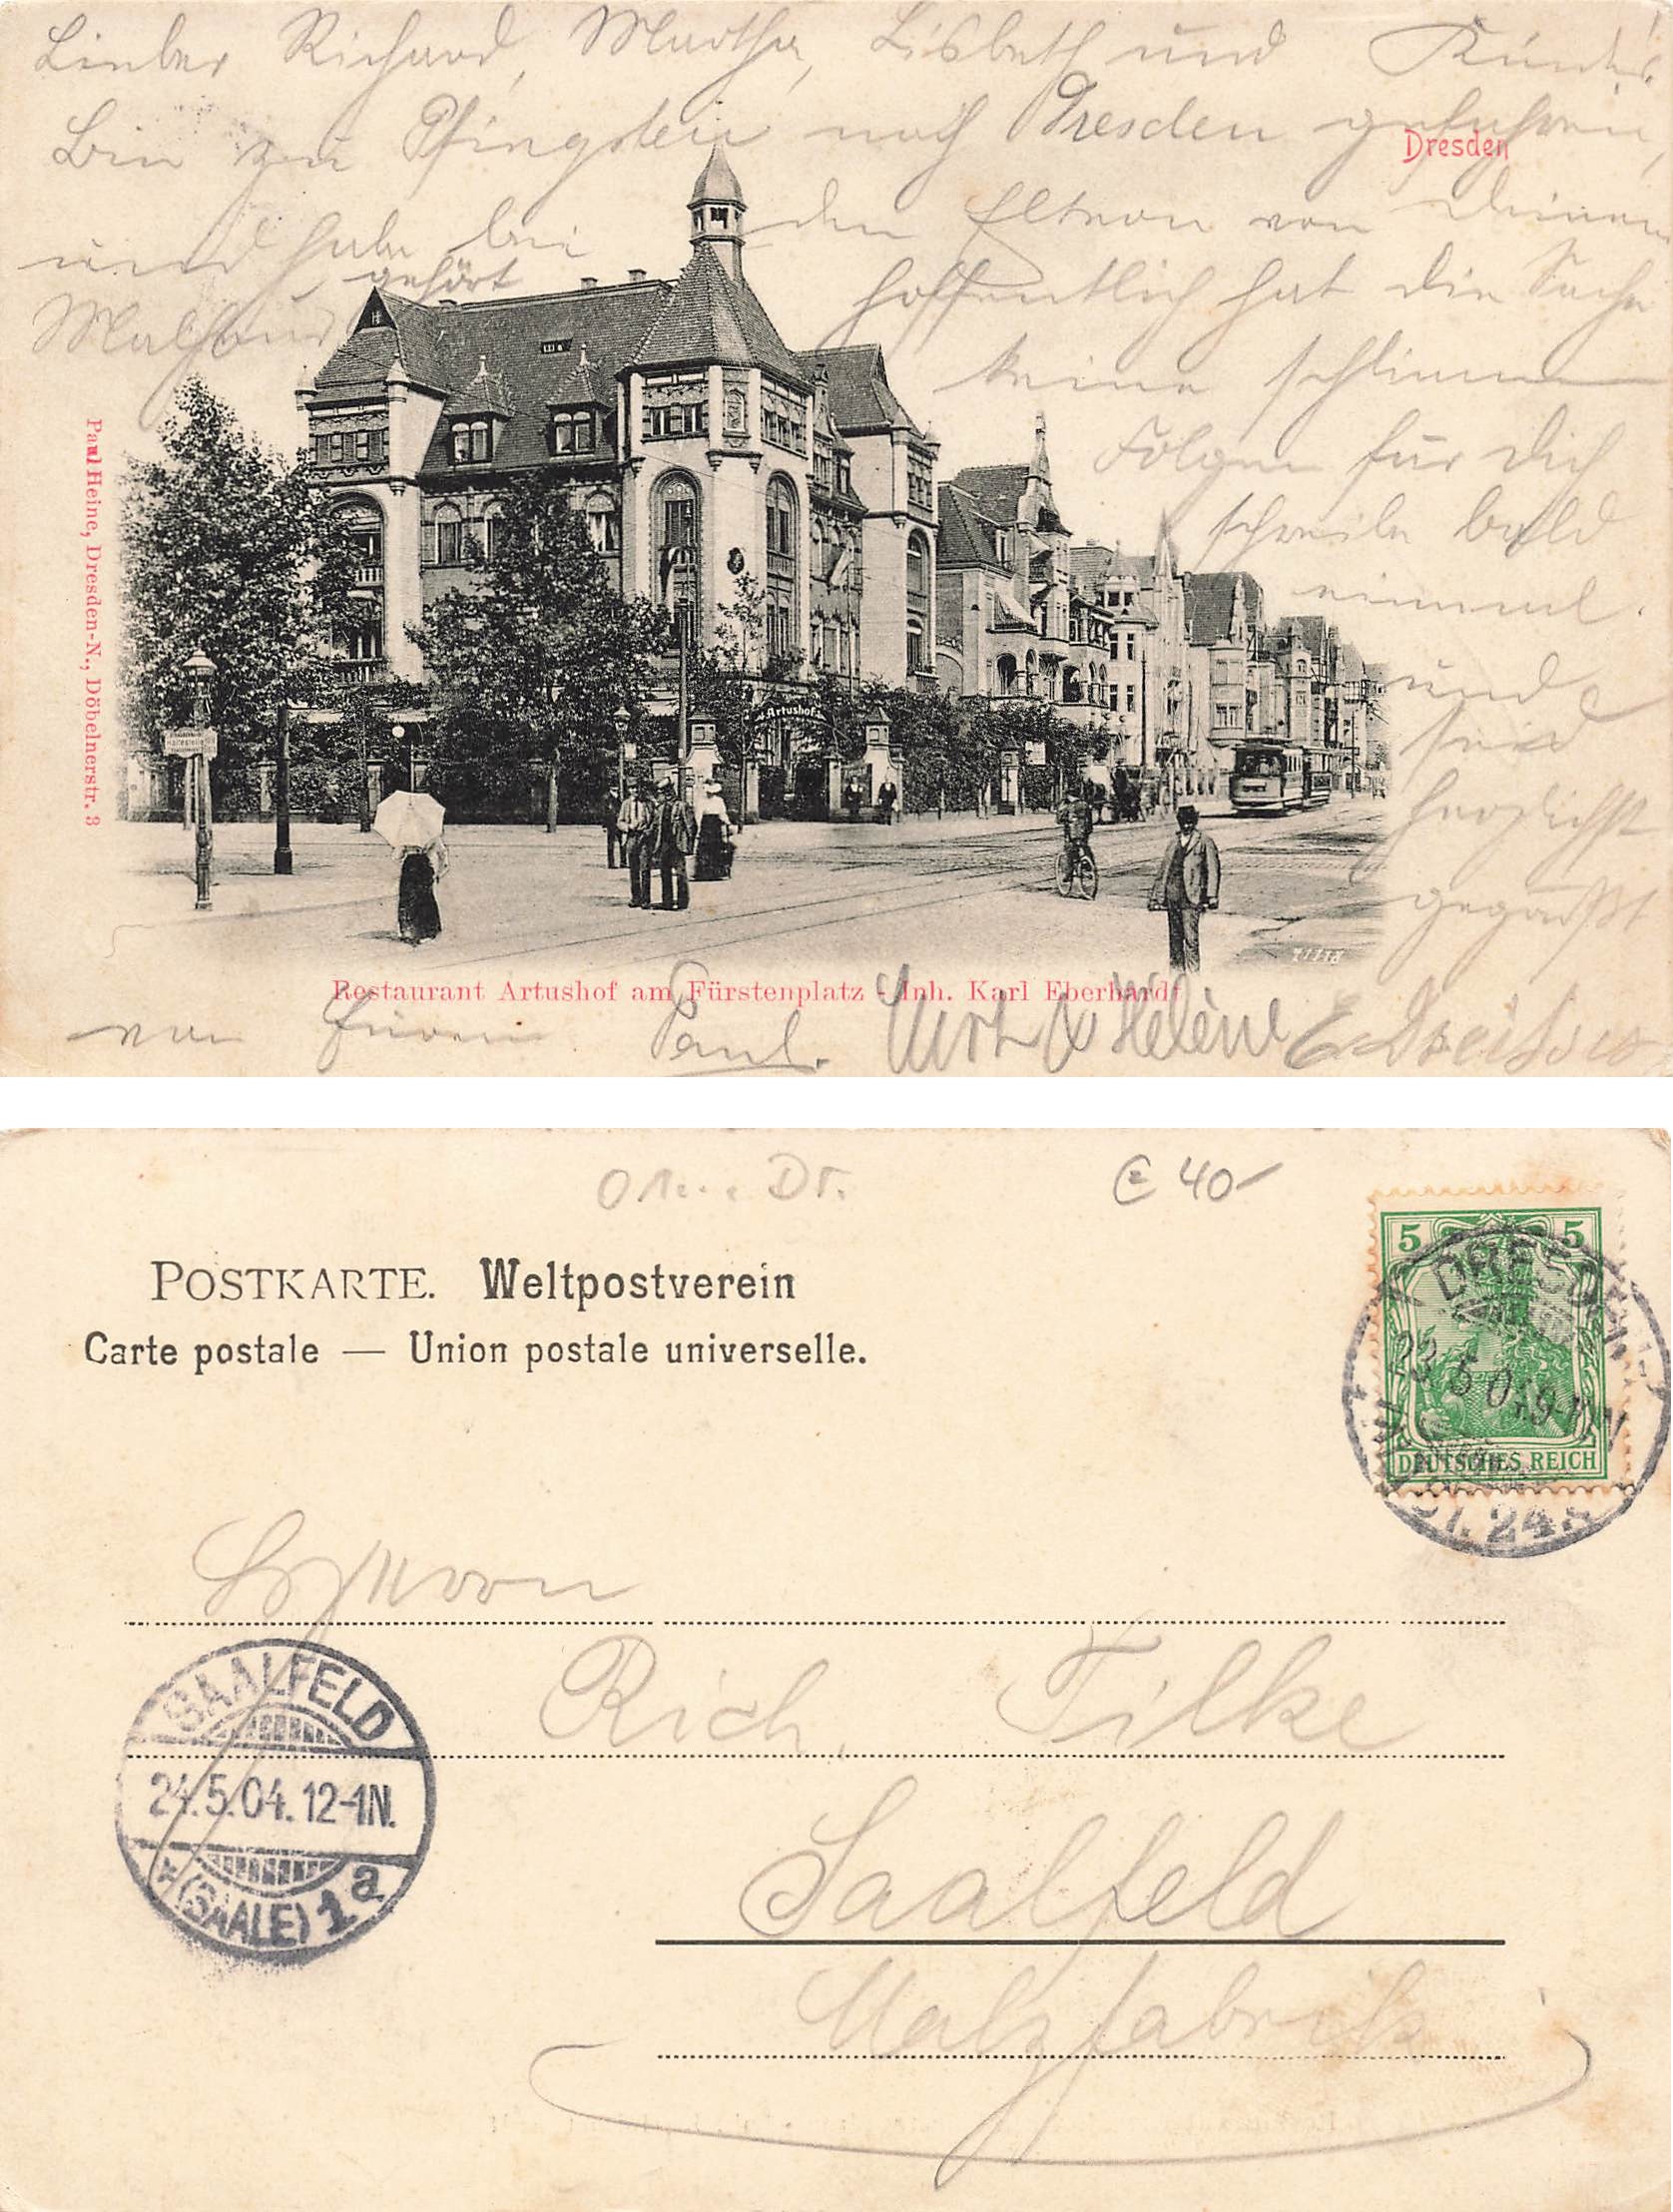 Lieber Richard, Martha, Lisbeth und Kinder!
Bin zu Pfingsten nach Dresden gefahren,
Dresden
und habe bei den Eltern von Deinem
Malheur gehört hoffentlich hat die Sache
keine schlimmen
Folgen für Dich
schreibe bald
einmal.
und
seid
herzlichst
gegrüßt
Artushof
Paul Heine, Dresden-N., Döbelnerstr. 3
Restaurant Artushof am Fürstenplatz - Inh. Karl Eberhardt
von Eurem Paul. Kurt & Helene
Dr.
40
POSTKARTE. Weltpostverein
Carte postale — Union postale universelle.
5 5
DRESDEN
23 5 04 9-10N
DEUTSCHES REICH
24
Herrn
Rich. Filke
Saalfeld
Malzfabrik
SAALFELD
24.5.04. 12-1N.
* (SAALE) 1a